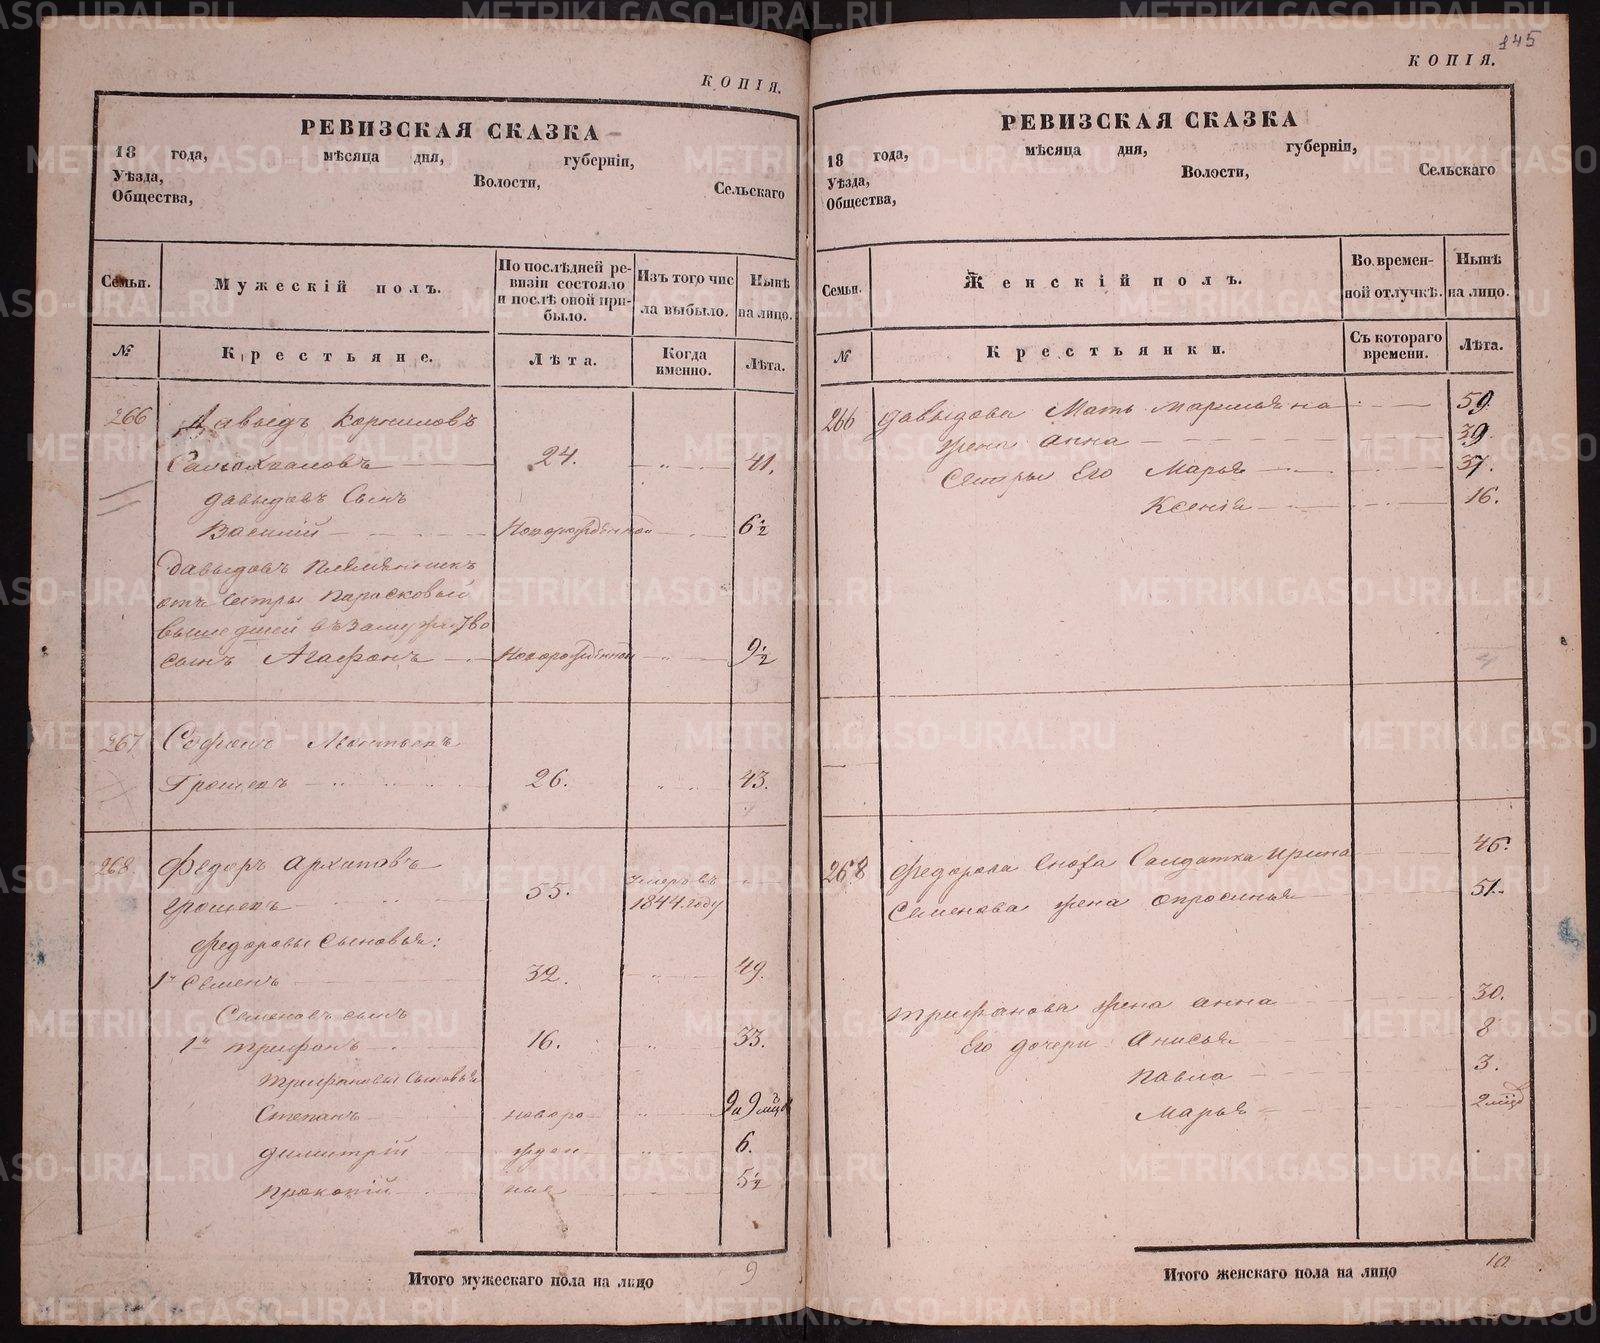 145
КОПІЯ.
РЕВИЗСКАЯ СКАЗКА
18 года, мѣсяца дня, губерніи,
Уѣзда, Волости, Сельскаго
Общества,
Семьи.
Мужескій полъ.
По послѣдней ре-
визіи состояло
и послѣ оной при-
было.
Изъ того чис
ла выбыло.
Нынѣ
на лицо.
№
Крестьяне.
Лѣта.
Когда
именно.
Лѣта.
266 Давыдъ Корниловъ
24. 41.
давыдовъ Сынъ
Василій Новорожденной 6½
Давыдовъ племянникъ
отъ Сестры Парасковьи
вышедшей въ замужство
сынъ Агафонъ Новорожденной 9½
3
267 Софонъ
Грошевъ 26. 43.
1
268 Федоръ Архиповъ
Грошевъ 55. Умеръ въ
1844 году
Федоровы Сыновья:
1й Семенъ 32. 49.
Семеновъ сынъ
1й Трифонъ 16. 33.
Трифоновы Сыновья
Степанъ новоро 9 и 9 мцов
Димитрій жден 6.
Прокопій ные 5½
Итого мужескаго пола на лицо 9
КОПІЯ.
РЕВИЗСКАЯ СКАЗКА
18 года, мѣсяца дня, губерніи,
Уѣзда, Волости, Сельскаго
Общества,
Семьи.
Женскій полъ.
Во времен-
ной отлучкѣ.
Нынѣ
на лицо.
№
Крестьянки.
Съ котораго
времени.
Лѣта.
266 Давыдова Мать Маримьяна 59.
жена Анна 39.
Сестры Его Марья 37.
Ксенія 16.
4
268 Федорова Сноха Салдатка Ирина 46.
Семенова жена Опросинья 51.
Трифонова жена Анна 30.
Его дочери Анисья 8
Павла 3.
Марья 2 мцов
Итого женскаго пола на лицо 10
METRIKI.GASO-URAL.RU